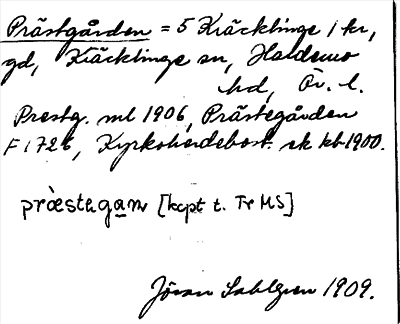 Prästgården = 5 Kräcklinge 1 kr,
gd, Kräcklinge sn, Hardemo
hd, Ör. l.
Prestg. ml 1906, Prästegården
F 1726, Kyrkoherdebost. sk kb 1900.
præstɩgaṇ [kopt t. Tr MS]
Jöran Sahlgren 1909.